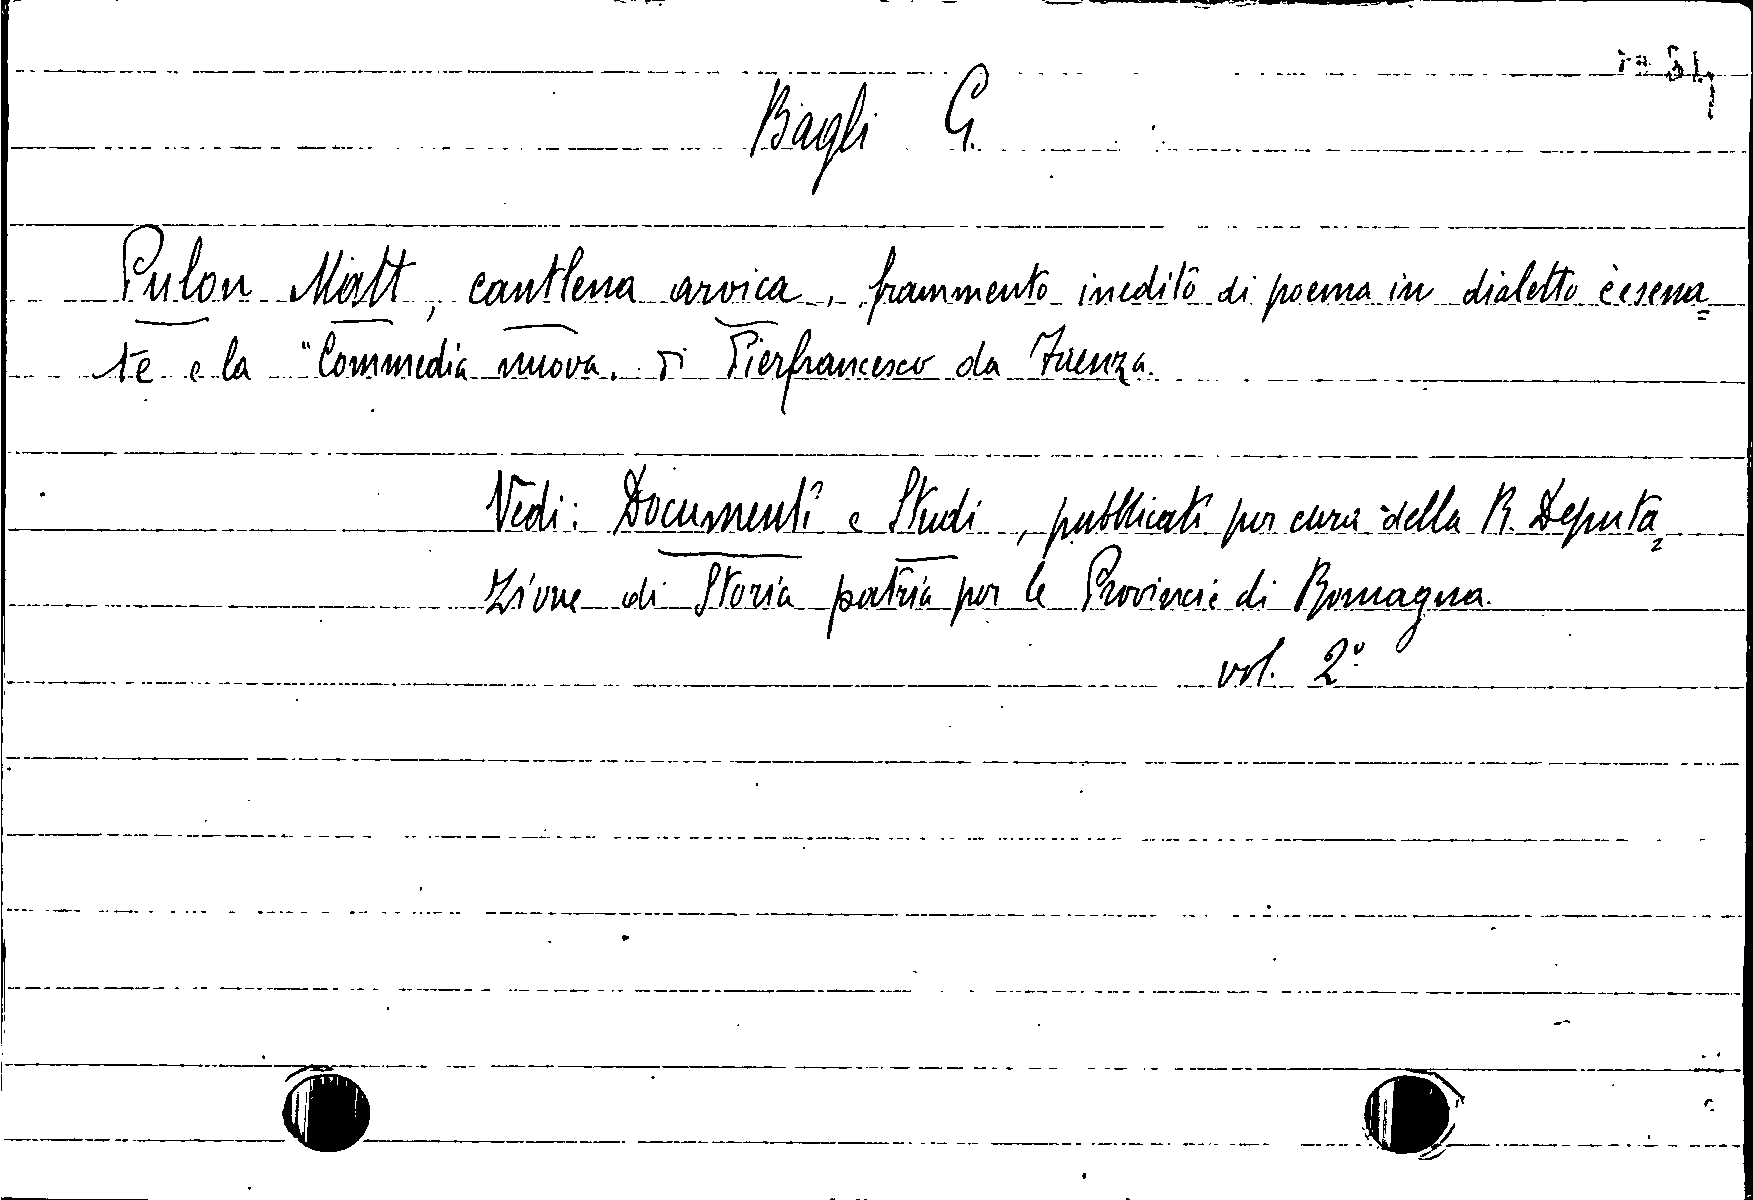 Bagli G.
Pulon Matt, cantlena arvica, frammento inedito di poema in dialetto cesena=
te e la "Commedia nuova. di Pierfrancesco da Faenza.
Vedi: Documenti e Studi, pubblicati per cura della R. Deputa=
zione di Storia patria per le Provincie di Romagna.
vol. 2º